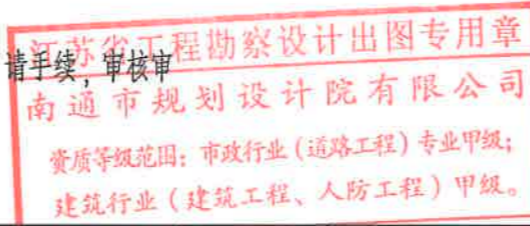 江苏省工程勘察设计出图专用章
请手续，审核审
南通市规划设计院有限公司
资质等级范围：市政行业（道路工程）专业甲级；
建筑行业（建筑工程、人防工程）甲级。